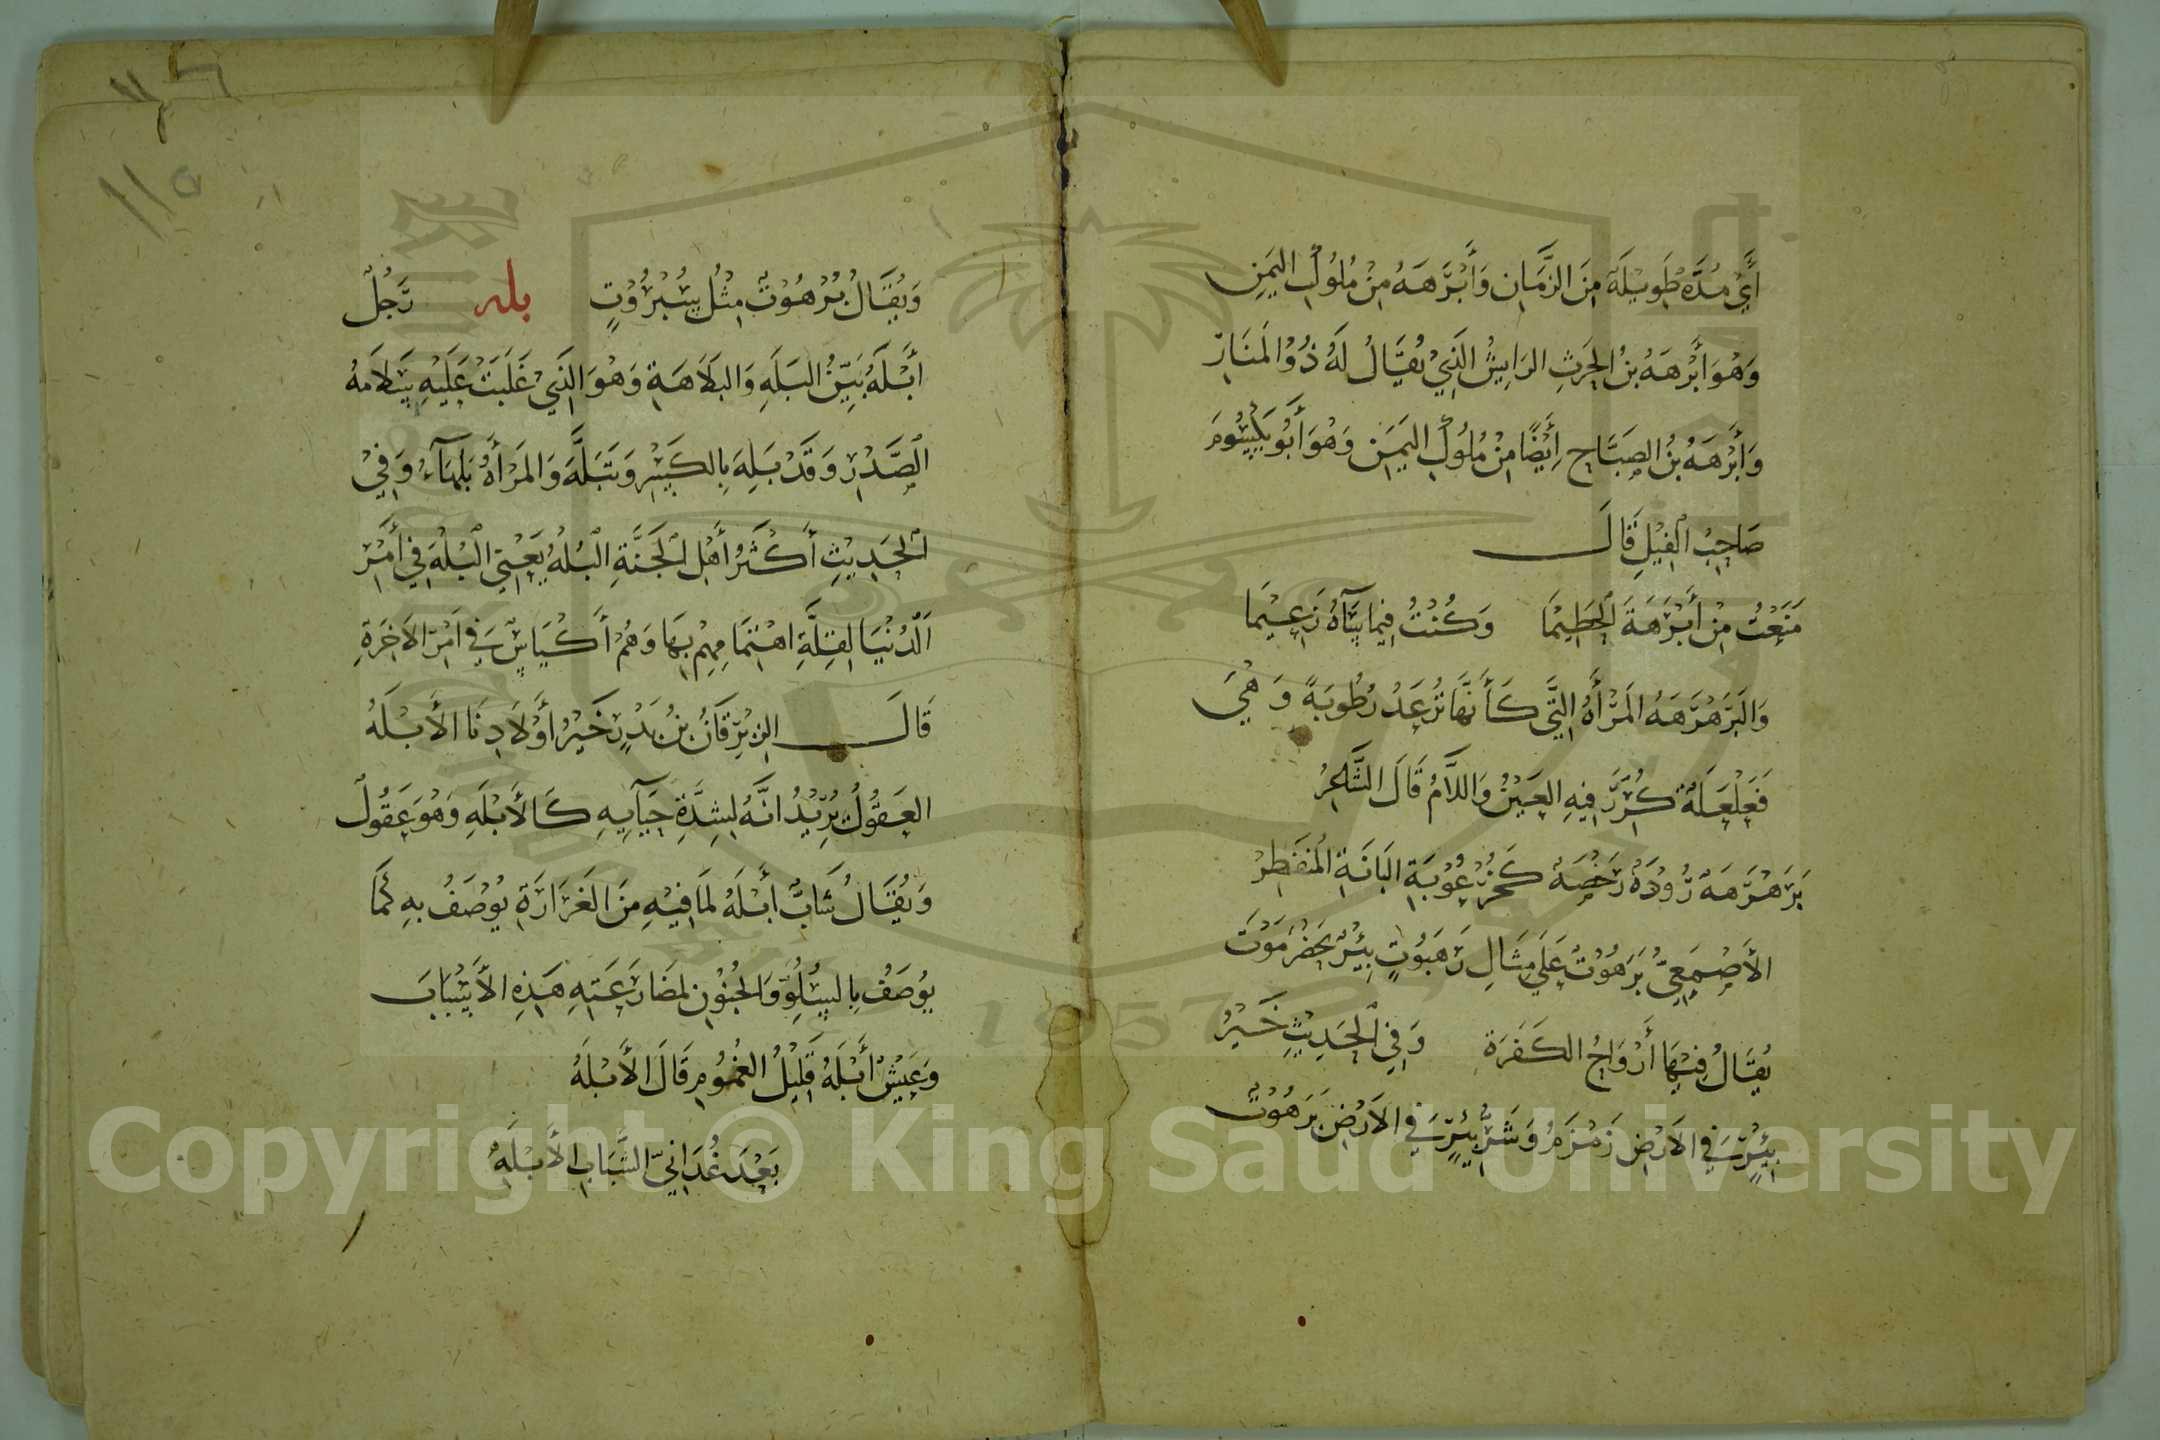 أَيْ مُدَّةٌ طَوِيْلَةٌ مِنَ الزَّمَانِ وَأَبْرَهَهُ مِنْ مُلُوْكِ اليَمَنِ
وَهُوَ أَبْرَهَهُ بْنُ الْحَرِثِ الرَايِشُ الَّذِيْ يُقَالُ لَهُ ذُوْ المَنَارِ
وَأَبْرَهَهُ بْنُ الصَبَّاحِ أَيْضًا مِنْ مُلُوْكِ اليَمَنِ وَهُوَ أَبُو يَكْسُوْمَ
صَاحِبُ الْفِيْلِ قَالَ
مَنَعْتُ مِنْ أَبْرَهَةَ الْحَطِيْمَا وَكُنْتُ فِيمَا سَآهُ زَعِيْمَا
وَالبَرَهْرَهَهُ المَرْأَةُ الَّتِي كَأَنَّهَا تُرْعَدُ رُطُوبَةً وَهِيَ
فَعَلْعَلَةٌ كُرِّرَ فِيهِ العَيْنُ وَاللَّامُ قَالَ الشَّاعِرُ
بَرَهْرَهَةٌ رُوْدَةٌ رَخْصَةٌ كَخُرْعُوْبَةِ البَانَةِ المُنْفَطِرْ
الأَصْمَعِيُّ بَرَهُوْتٌ عَلَى مِثَالِ رَهَبُوْتٍ بِئْرٌ بِحَضْرَمَوْتَ
يُقَالُ فِيْهَا أَرْوَاحُ الكَفَرَةِ وَفِي الْحَدِيْثِ خَيْرُ
بِئْرٍ فِي الأَرْضِ زَمْزَمُ وَشَرُّ بِئْرٍ فِي الأَرْضِ بَرَهُوْتٌ
١١٥
وَيُقَالُ بُرْهُوْتٌ مِثْلُ سُبْرُوْتٍ بله رَجُلٌ
أَبْلَهُ بَيِّنُ البَلَهِ وَالبَلَاهَةِ وَهُوَ الَّذِيْ غَلَبَتْ عَلَيْهِ سَلَامَةُ
الصَّدْرِ وَقَدْ بَلِهَ بِالكَسْرِ وَتَبَلَّهَ وَالمَرْأَةُ بَلْهَاءُ وَفِيْ
الْحَدِيْثِ أَكْثَرُ أَهْلِ الْجَنَّةِ الْبُلْهُ يَعْنِي الْبُلْهَ فِي أَمْرِ
الدُنْيَا لِقِلَّةِ اهْتِمَامِهِمْ بِهَا وَهُمْ أَكْيَاسٌ فِي أَمْرِ الآخِرَةِ
قَالَ الزِبْرِقَانُ بْنُ بَدْرٍ خَيْرُ أَوْلَادِنَا الأَبْلَهُ
العَقُوْلُ يُرِيْدُ انَّهُ لِشِدَّةِ حَيَآيِهِ كَالأَبْلَهِ وَهُوَ عَقُوْلٌ
وَيُقَالُ شَابٌّ أَبْلَهُ لِمَا فِيْهِ مِنَ الغَرَارَةِ يُوْصَفُ بِهِ كَمَا
يُوْصَفُ بِالسُلُوِّ وَالجُنُوْنِ لِمُضَارَعَتِهِ هَذِهِ الأَسْبَابَ
وَعَيْشٌ أَبْلَهُ قَلِيْلُ الغُمُوْمِ قَالَ الأَبْلَهُ
بَعْدَ غُدَانِيِّ الشَّبَابِ الأَبْلَهُ
Copyright © King Saud University
1957